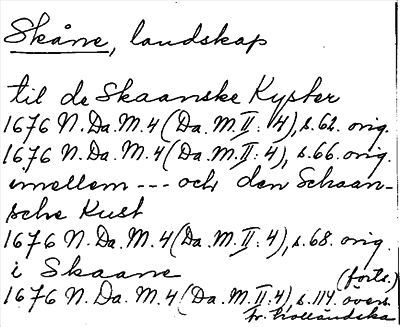 Skåne, landskap
til de Skaanske Kyster
1676 N. Da. M. 4 (Da. M. II: 4), s. 62. orig.
1676 N. Da. M. 4 (Da. M. II: 4), s. 66. orig.
imellem --- och den Schaan-
sche Kust
1676 N. Da. M. 4 (Da. M. II: 4), s. 68. orig.
i Skaane
(forts.)
1676 N. Da. M. 4 (Da. M. II: 4), s. 114. övers.
fr. holländska